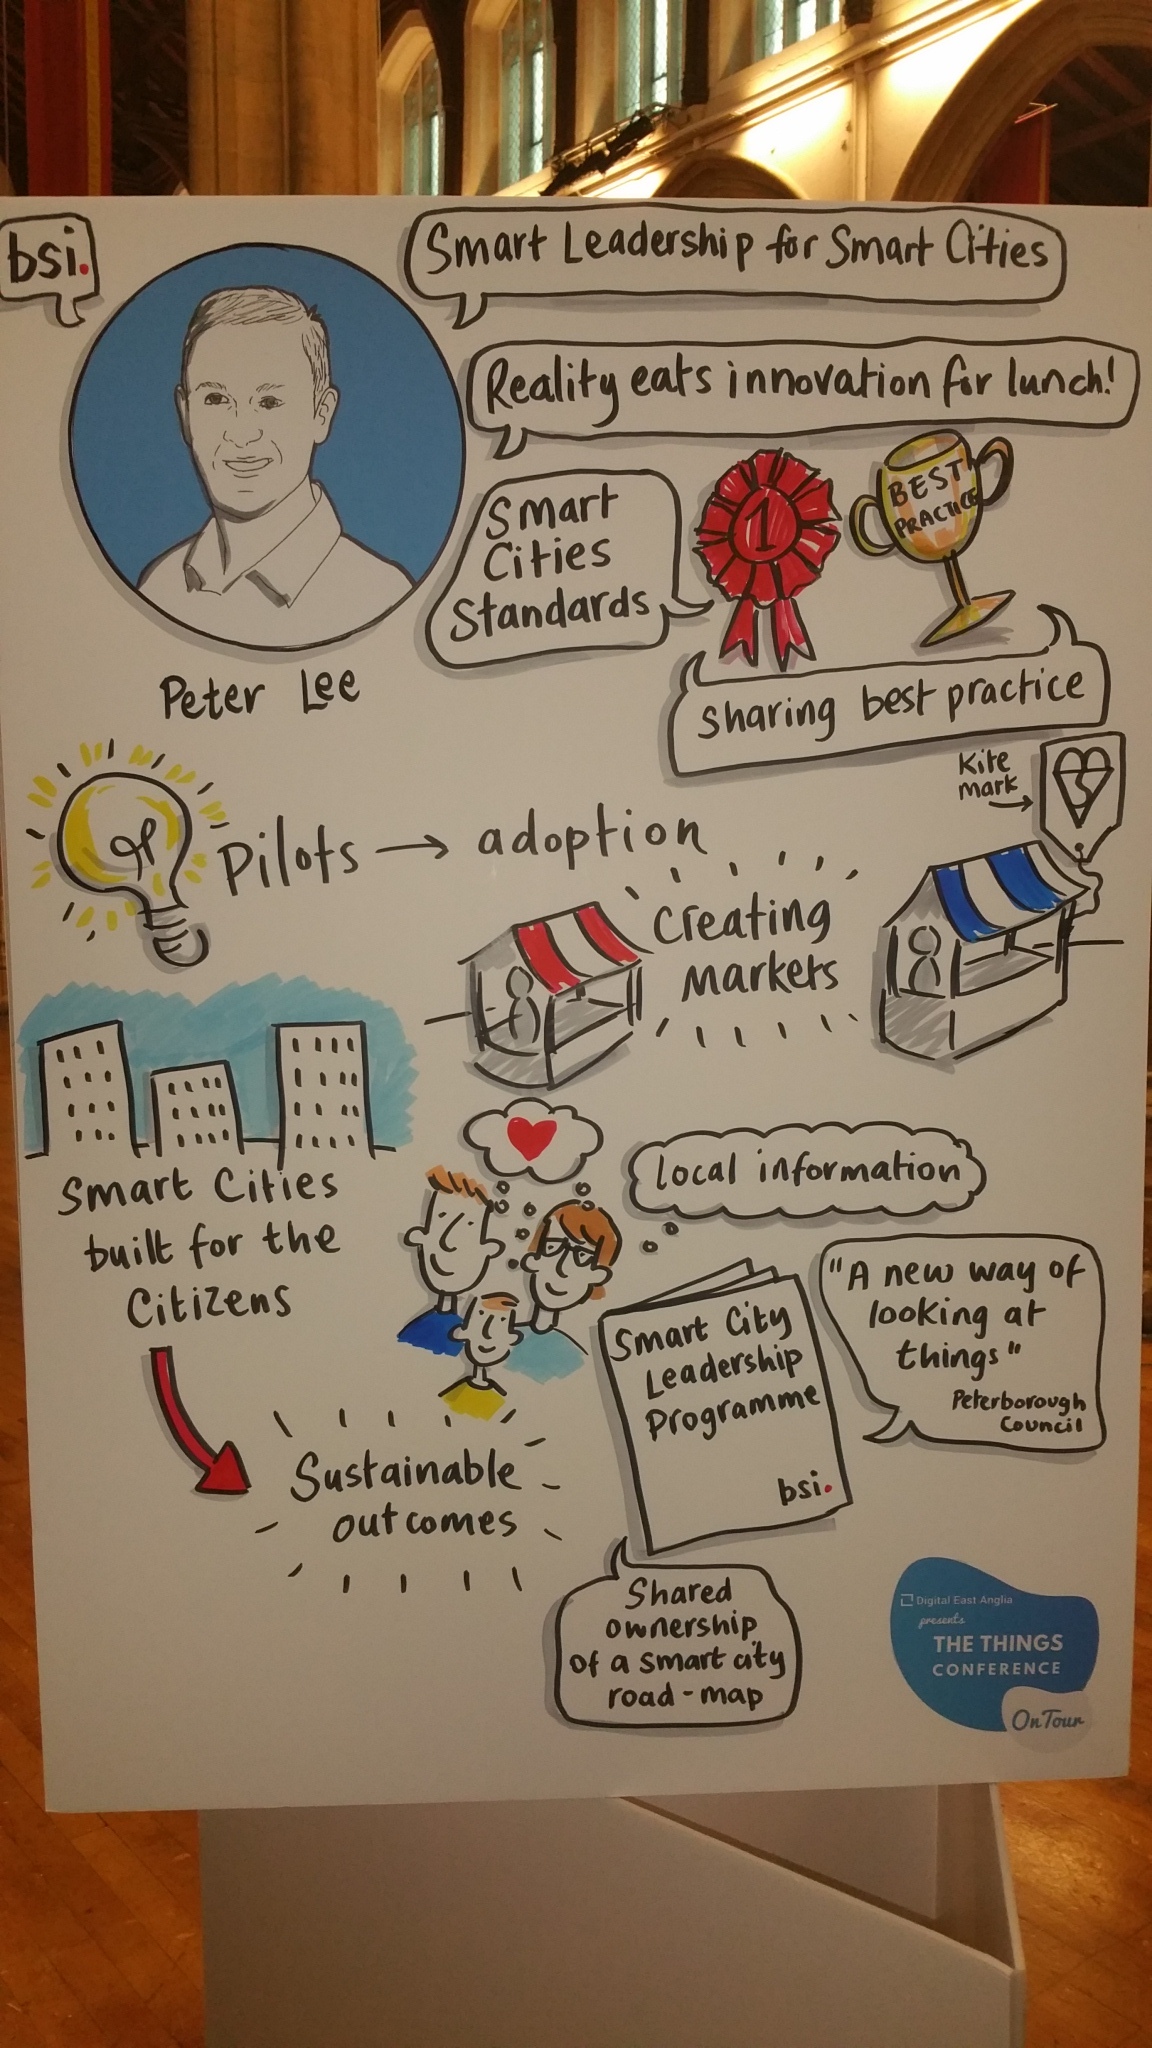 bsi.
Smart Leadership for Smart Cities
Reality eats innovation for lunch!
Smart
Cities
Standards
1
BEST
PRACTICE
sharing best practice
Peter Lee
Kite
mark
Pilots → adoption
Creating
markets
Smart Cities
built for the
Citizens
local information
Smart City
Leadership
Programme
bsi.
"A new way of
looking at
things"
Peterborough
Council
Sustainable
outcomes
Shared
ownership
of a smart city
road-map
Digital East Anglia
presents
THE THINGS
CONFERENCE
On Tour